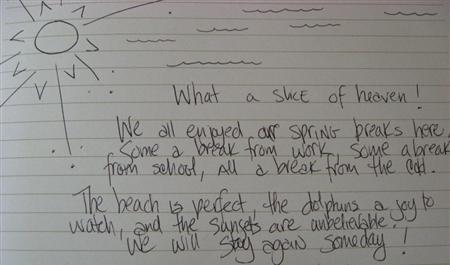 What a slice of heaven!
We all enjoyed our spring breaks here.
Some a break from work, some a break
from school, all a break from the cold.
The beach is perfect, the dolphins a joy to
watch, and the sunsets are unbelievable.
We will stay again someday!